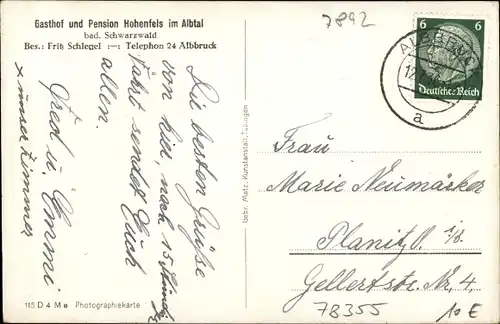 Gasthof und Pension Hohenfels im Albtal
bad. Schwarzwald
Bes.: Fritz Schlegel :—: Telephon 24 Albbruck
7892
6 6
Deutsches Reich
ALBBRUCK
a
Die besten Grüße
von hier, nach 15 stündig.
Fahrt sendet Euch
allen.
Fred u. Emmi
x unser Zimmer
Gebr. Metz, Kunstanstalt, Tübingen
Frau
Marie Neumärker
Planitz i/S.
Gellertstr. Nr. 4.
78355
10 E
115 D 4 M e Photographiekarte